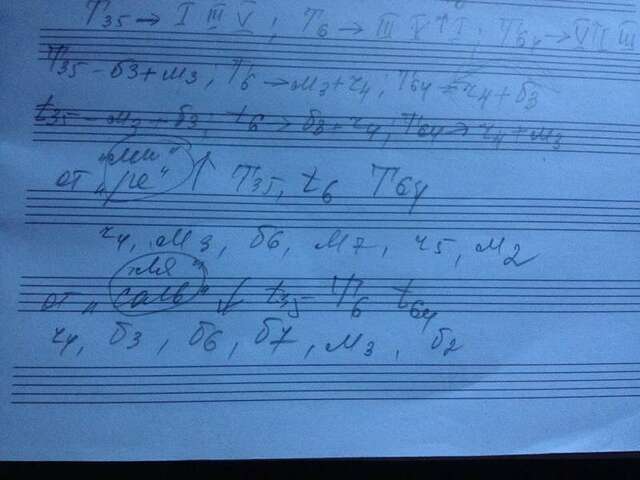 T35 → I III V ; T6 → III V I ; T64 → V I III
T35 - б3+м3 ; T6 → м3+ч4 ; T64 = ч4+б3
t35 - м3+б3 ; t6 → б3+ч4 ; T64 → ч4+м3
„ми“
от „ре“ ↑ T35, t6 T64
ч4, м3, б6, м7, ч5, м2
„ля“
от „соль“ ↓ t35 - T6 t64
ч4, б3, б6, б7, м3, б2